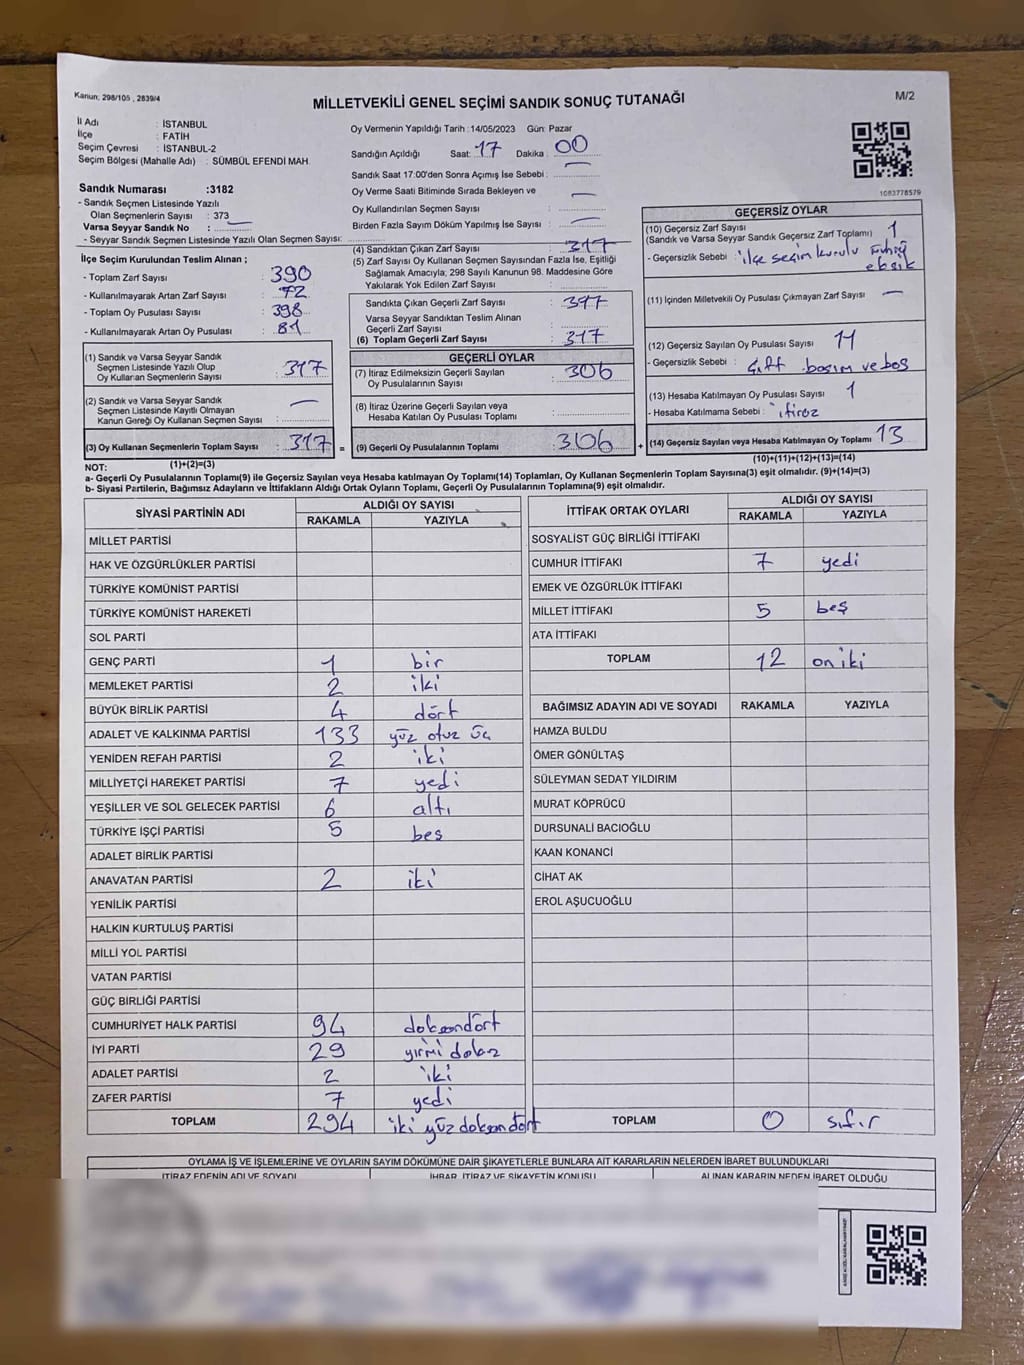 Kanun, 298/105 , 2839/4
MİLLETVEKİLİ GENEL SEÇİMİ SANDIK SONUÇ TUTANAĞI
M/2
İl Adı : İSTANBUL
İlçe : FATİH
Seçim Çevresi : İSTANBUL-2
Seçim Bölgesi (Mahalle Adı) : SÜMBÜL EFENDİ MAH.
Sandık Numarası :3182
- Sandık Seçmen Listesinde Yazılı
Olan Seçmenlerin Sayısı : 373
Varsa Seyyar Sandık No :
- Seyyar Sandık Seçmen Listesinde Yazılı Olan Seçmen Sayısı:
İlçe Seçim Kurulundan Teslim Alınan ;
- Toplam Zarf Sayısı : 390
- Kullanılmayarak Artan Zarf Sayısı : 72
- Toplam Oy Pusulası Sayısı : 398
- Kullanılmayarak Artan Oy Pusulası : 81
(1) Sandık ve Varsa Seyyar Sandık
Seçmen Listesinde Yazılı Olup
Oy Kullanan Seçmenlerin Sayısı : 317
(2) Sandık ve Varsa Seyyar Sandık
Seçmen Listesinde Kayıtlı Olmayan
Kanun Gereği Oy Kullanan Seçmen Sayısı : —
(3) Oy Kullanan Seçmenlerin Toplam Sayısı : 317 =
(1)+(2)=(3)
Oy Vermenin Yapıldığı Tarih :14/05/2023 Gün: Pazar
Sandığın Açıldığı Saat: 17 Dakika : 00
Sandık Saat 17:00'den Sonra Açımış İse Sebebi : —
Oy Verme Saati Bitiminde Sırada Bekleyen ve
Oy Kullandırılan Seçmen Sayısı : —
Birden Fazla Sayım Döküm Yapılmış İse Sayısı : —
(4) Sandıktan Çıkan Zarf Sayısı : 317
(5) Zarf Sayısı Oy Kullanan Seçmen Sayısından Fazla İse, Eşitliği
Sağlamak Amacıyla; 298 Sayılı Kanunun 98. Maddesine Göre
Yakılarak Yok Edilen Zarf Sayısı :
Sandıkta Çıkan Geçerli Zarf Sayısı : 317
Varsa Seyyar Sandıktan Teslim Alınan
Geçerli Zarf Sayısı :
(6) Toplam Geçerli Zarf Sayısı : 317
GEÇERLİ OYLAR
(7) İtiraz Edilmeksizin Geçerli Sayılan
Oy Pusulalarının Sayısı : 306
(8) İtiraz Üzerine Geçerli Sayılan veya
Hesaba Katılan Oy Pusulası Toplamı :
(9) Geçerli Oy Pusulalarının Toplamı : 306 +
1083778579
GEÇERSİZ OYLAR
(10) Geçersiz Zarf Sayısı : 1
(Sandık ve Varsa Seyyar Sandık Geçersiz Zarf Toplamı)
- Geçersizlik Sebebi : ilçe seçim kurulu mührü
eksik
(11) İçinden Milletvekili Oy Pusulası Çıkmayan Zarf Sayısı : —
(12) Geçersiz Sayılan Oy Pusulası Sayısı : 11
- Geçersizlik Sebebi : Çift basım ve boş
(13) Hesaba Katılmayan Oy Pusulası Sayısı : 1
- Hesaba Katılmama Sebebi : itiraz
(14) Geçersiz Sayılan veya Hesaba Katılmayan Oy Toplamı : 13
(10)+(11)+(12)+(13)=(14)
NOT:
a- Geçerli Oy Pusulalarının Toplamı(9) ile Geçersiz Sayılan veya Hesaba katılmayan Oy Toplamı(14) Toplamları, Oy Kullanan Seçmenlerin Toplam Sayısına(3) eşit olmalıdır. (9)+(14)=(3)
b- Siyasi Partilerin, Bağımsız Adayların ve İttifakların Aldığı Ortak Oyların Toplamı, Geçerli Oy Pusulalarının Toplamına(9) eşit olmalıdır.
SİYASİ PARTİNİN ADI ALDIĞI OY SAYISI
RAKAMLA YAZIYLA
MİLLET PARTİSİ
HAK VE ÖZGÜRLÜKLER PARTİSİ
TÜRKİYE KOMÜNİST PARTİSİ
TÜRKİYE KOMÜNİST HAREKETİ
SOL PARTİ
GENÇ PARTİ 1 bir
MEMLEKET PARTİSİ 2 iki
BÜYÜK BİRLİK PARTİSİ 4 dört
ADALET VE KALKINMA PARTİSİ 133 yüz otuz üç
YENİDEN REFAH PARTİSİ 2 iki
MİLLİYETÇİ HAREKET PARTİSİ 7 yedi
YEŞİLLER VE SOL GELECEK PARTİSİ 6 altı
TÜRKİYE İŞÇİ PARTİSİ 5 beş
ADALET BİRLİK PARTİSİ
ANAVATAN PARTİSİ 2 iki
YENİLİK PARTİSİ
HALKIN KURTULUŞ PARTİSİ
MİLLİ YOL PARTİSİ
VATAN PARTİSİ
GÜÇ BİRLİĞİ PARTİSİ
CUMHURİYET HALK PARTİSİ 94 doksandört
İYİ PARTİ 29 yirmi dokuz
ADALET PARTİSİ 2 iki
ZAFER PARTİSİ 7 yedi
TOPLAM 294 iki yüz doksandört
İTTİFAK ORTAK OYLARI ALDIĞI OY SAYISI
RAKAMLA YAZIYLA
SOSYALİST GÜÇ BİRLİĞİ İTTİFAKI
CUMHUR İTTİFAKI 7 yedi
EMEK VE ÖZGÜRLÜK İTTİFAKI
MİLLET İTTİFAKI 5 beş
ATA İTTİFAKI
TOPLAM 12 on iki
BAĞIMSIZ ADAYIN ADI VE SOYADI RAKAMLA YAZIYLA
HAMZA BULDU
ÖMER GÖNÜLTAŞ
SÜLEYMAN SEDAT YILDIRIM
MURAT KÖPRÜCÜ
DURSUNALİ BACIOĞLU
KAAN KONANCİ
CİHAT AK
EROL AŞUCUOĞLU
TOPLAM 0 sıfır
OYLAMA İŞ VE İŞLEMLERİNE VE OYLARIN SAYIM DÖKÜMÜNE DAİR ŞİKAYETLERLE BUNLARA AİT KARARLARIN NELERDEN İBARET BULUNDUKLARI
İTİRAZ EDENİN ADI VE SOYADI İHBAR, İTİRAZ VE ŞİKAYETİN KONUSU ALINAN KARARIN NEDEN İBARET OLDUĞU